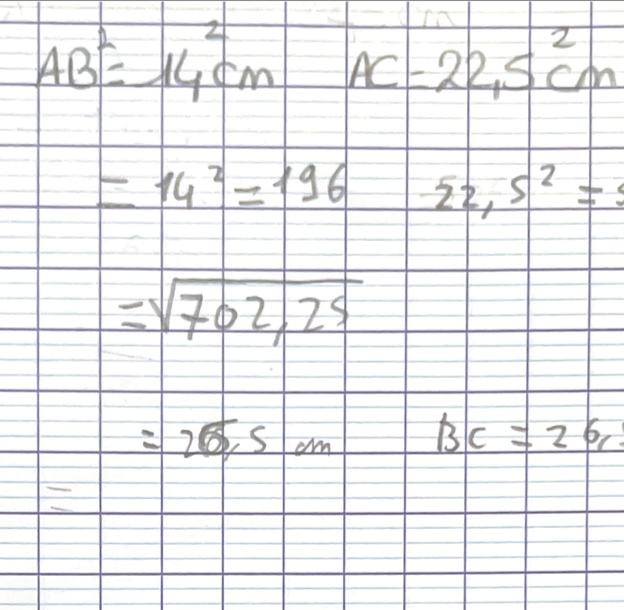 AB² = 14²cm AC = 22,5²cm
= 14² = 196 22,5² =
= √702,25
= 26,5 cm BC = 26,
=